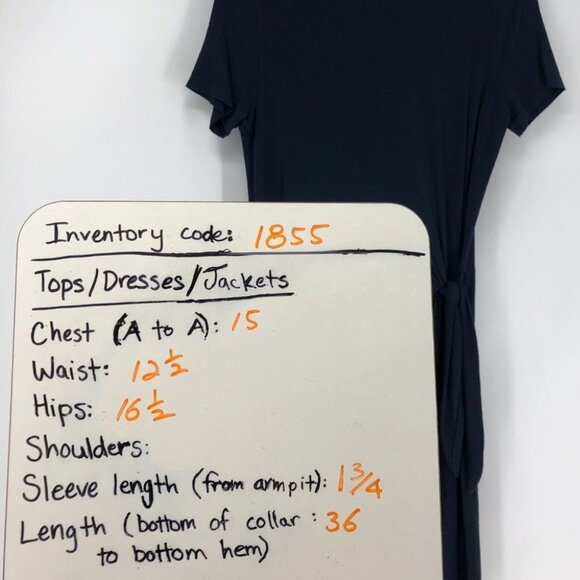 Inventory code: 1855
Tops/Dresses/Jackets
Chest (A to A): 15
Waist: 12 1/2
Hips: 16 1/2
Shoulders:
Sleeve length (from armpit): 1 3/4
Length (bottom of collar : 36
to bottom hem)